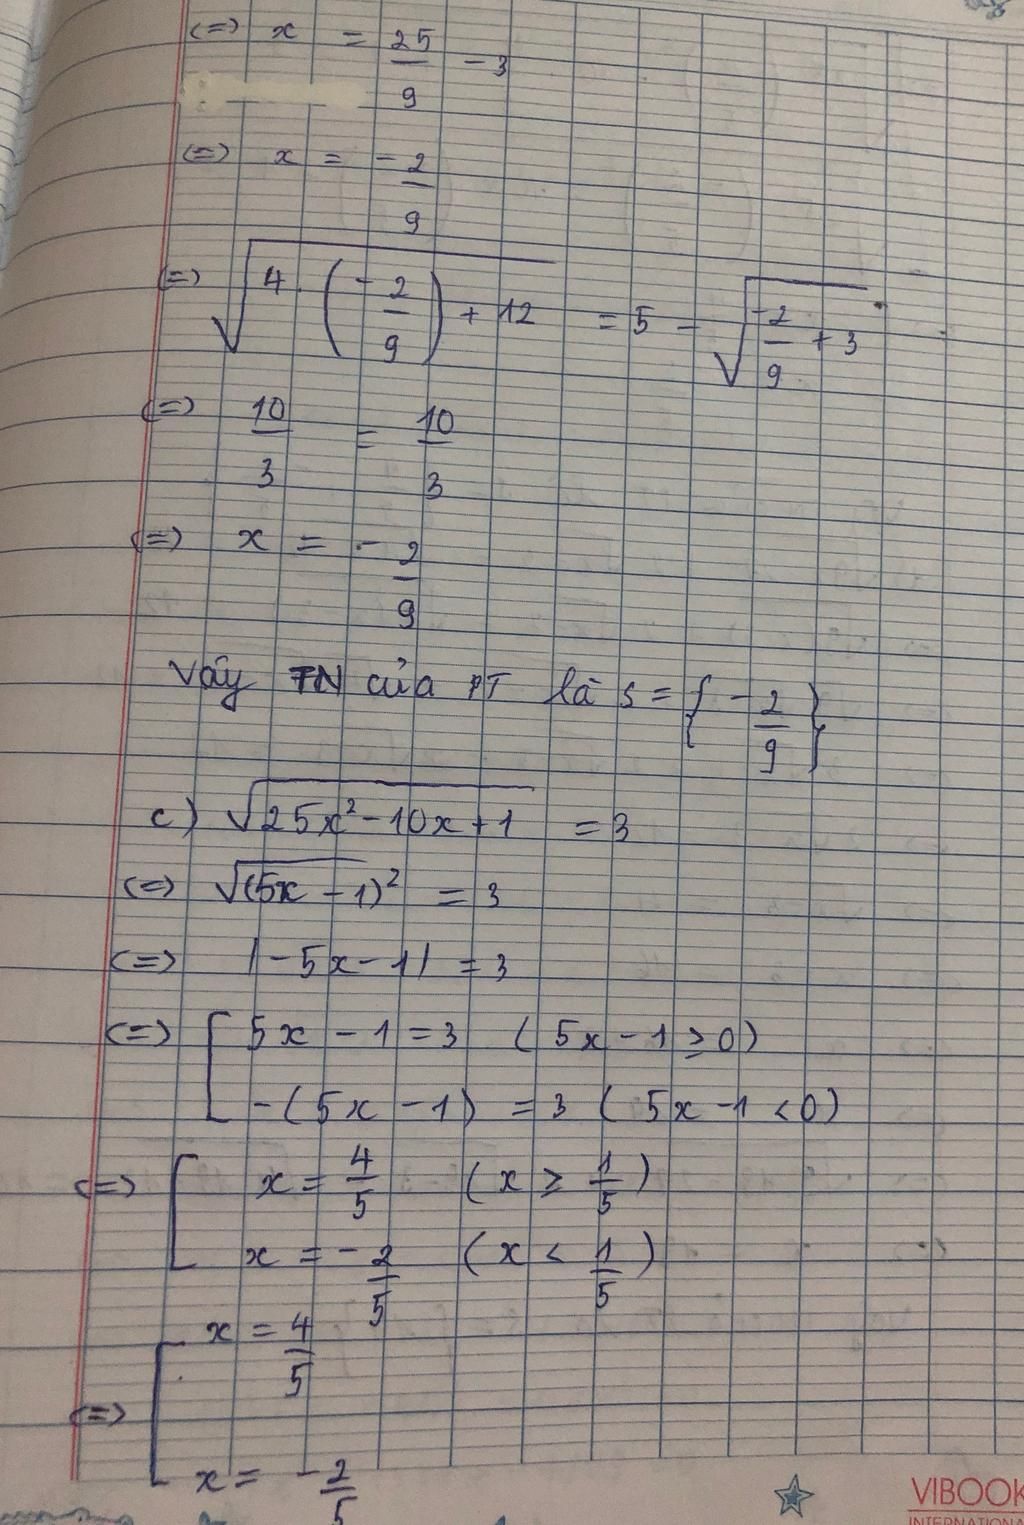 (=) x = 25/9 - 3
(=) x = -2/9
(=) √(4. (-2/9) + 12) = 5 - √(-2/9 + 3)
(=) 10/3 = 10/3
(=) x = -2/9
Vậy TN của PT là S = {-2/9}
c) √(25x² - 10x + 1) = 3
(=) √(5x - 1)² = 3
(=) |-5x - 1| = 3
(=) [ 5x - 1 = 3 (5x - 1 ≥ 0)
-(5x - 1) = 3 (5x - 1 < 0)
(=) [ x = 4/5 (x ≥ 1/5)
x = -2/5 (x < 1/5)
(=) [ x = 4/5
x = -2/5
VIBOOK
INTERNATIONA